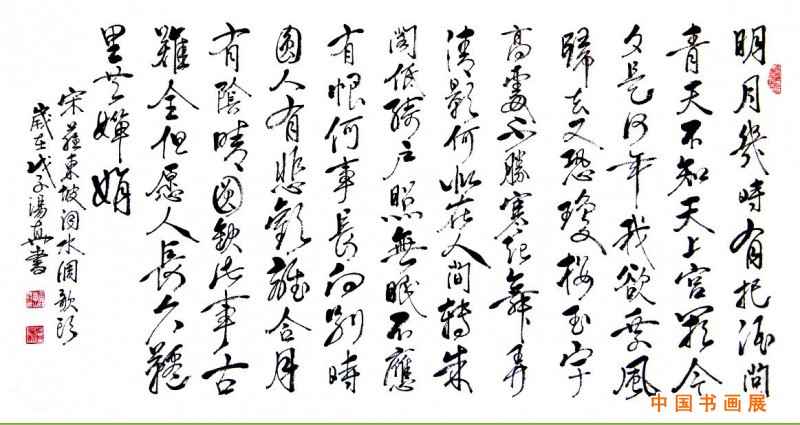 明月幾時有把酒問
青天不知天上宫闕今
夕是何年我欲乘風
歸去又恐瓊樓玉宇
高處不勝寒起舞弄
清影何似在人間轉朱
閣低綺户照無眠不應
有恨何事長向别時
圓人有悲歡離合月
有陰晴圓缺此事古
難全但愿人長久韆
里共嬋娟
宋蘇東坡詞水調歌頭
歲在戊子湯真書
中国书画展